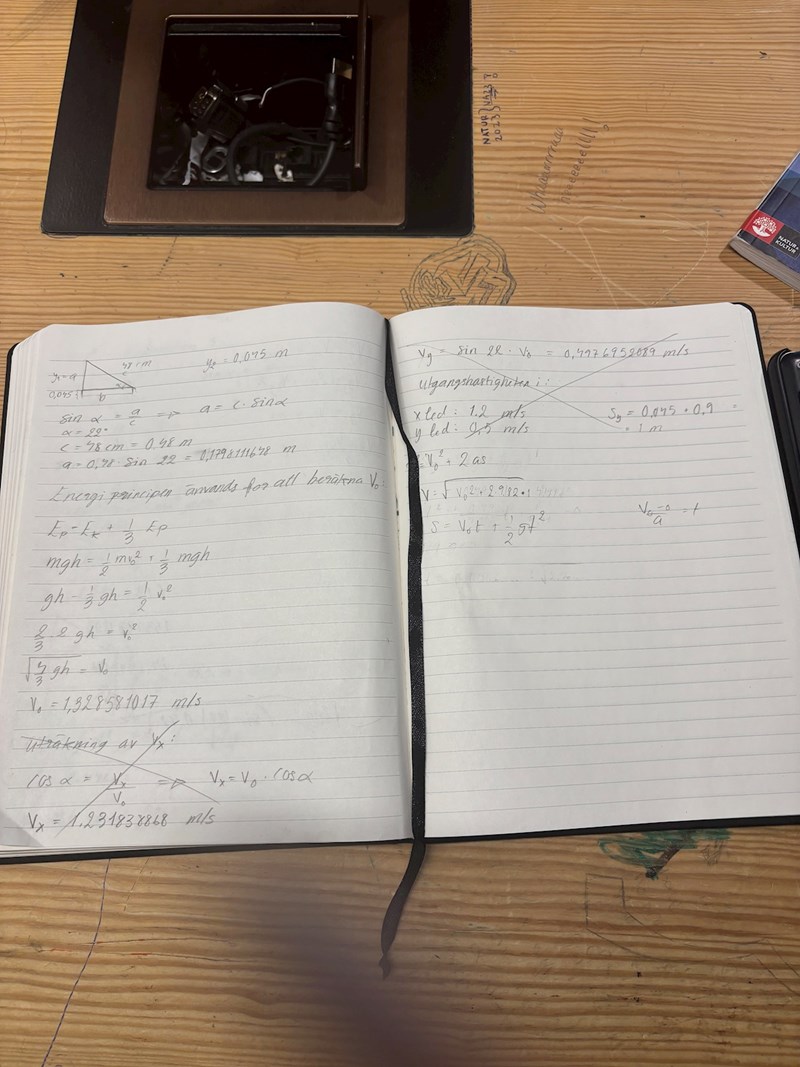 NATUR } NA23
2023
NATUR & KULTUR
48 cm
c
y₁ = a
0,045
b
y₂ = 0,045 m
sin α = a/c => a = c · sin α
α = 22°
c = 48 cm = 0,48 m
a = 0,48 · sin 22 = 0,1798111648 m
Energi principen används for att beräkna V₀:
Ep = Ek + 1/3 Ep
mgh = 1/2 mv₀² + 1/3 mgh
gh - 1/3 gh = 1/2 v₀²
2/3 · 2 gh = v₀²
√(4/3 gh) = V₀
V₀ = 1,328581017 m/s
Uträkning av Vx:
cos α = Vx/V₀ => Vx = V₀ · cos α
Vx = 1,231838868 m/s
Vy = sin 22 · V₀ = 0,4976952089 m/s
Utgångshastigheten i:
x led: 1.2 m/s
y led: 0,5 m/s
Sy = 0,045 + 0,9 =
= 1 m
= V₀² + 2as
V = √(V₀² + 2·9,82·1
S = V₀t + 1/2 gt²
= t